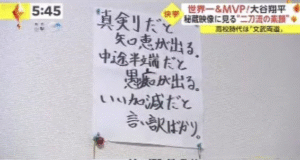 5:45
快挙
世界一&MVP!大谷翔平
秘蔵映像に見る"二刀流の素顔"
高校時代は"文武両道"
真剣だと
知恵が出る。
中途半端だと
愚痴が出る。
いい加減だと
言い訳ばかり。